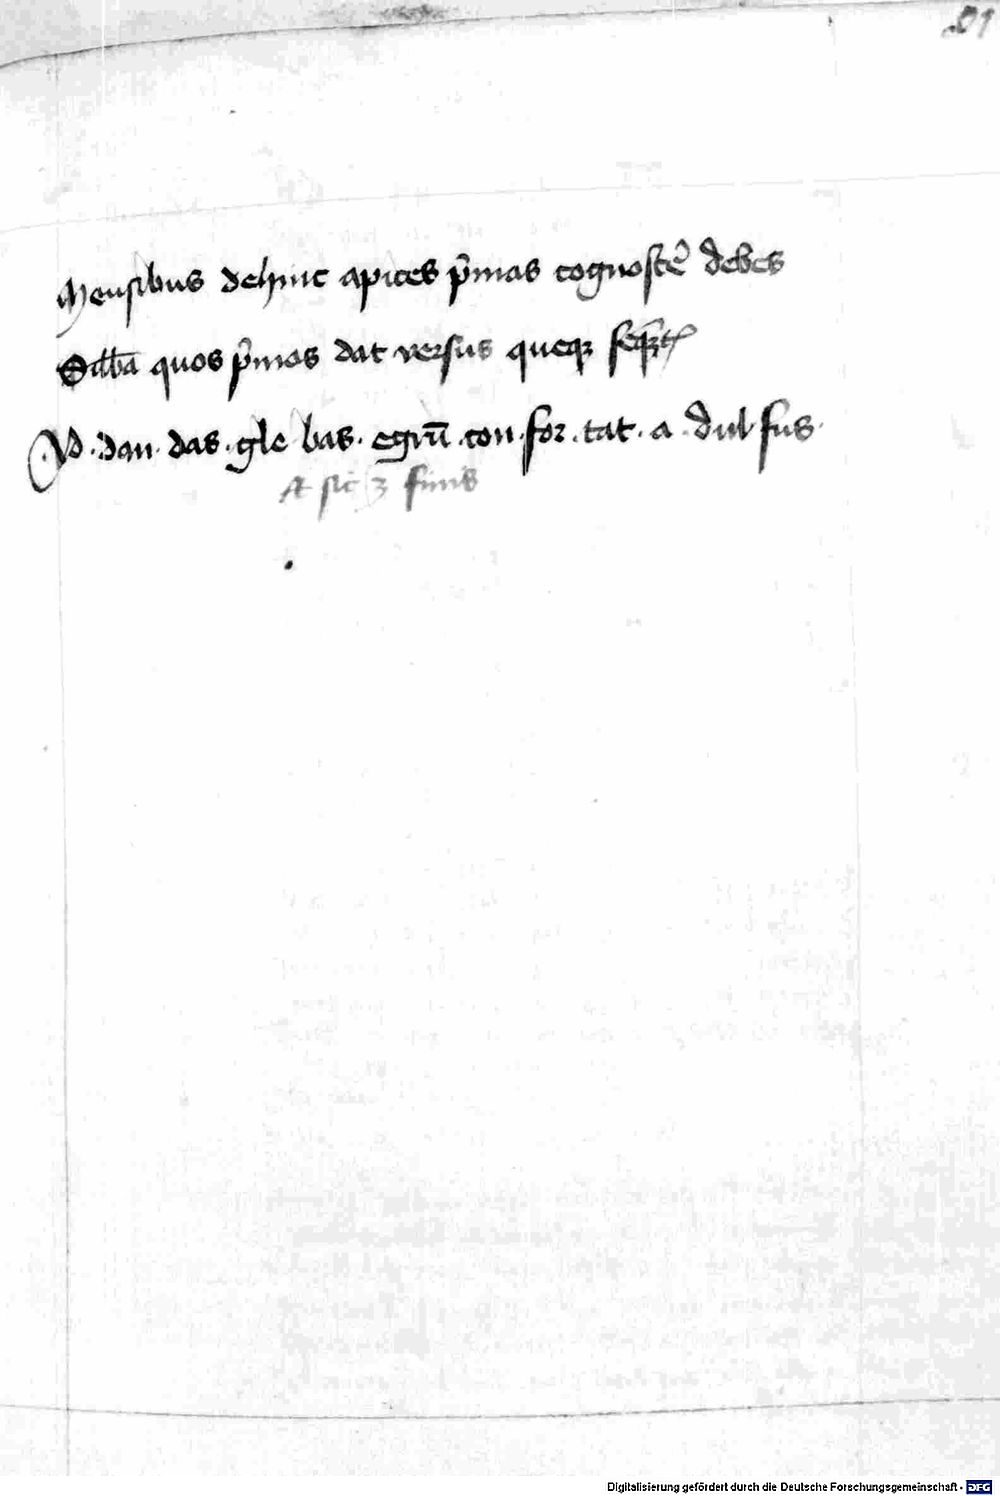 91
Mensibus dehinc apices p̄mas cognoscē debes
Sill̄ba quos p̄mos dat versus queqꝫ
Ad · dan · das · gle · bas · egrū · con · for · tat · a · dul · fus ·
Et sic ꝫ finis
Digitalisierung gefördert durch die Deutsche Forschungsgemeinschaft - DFG